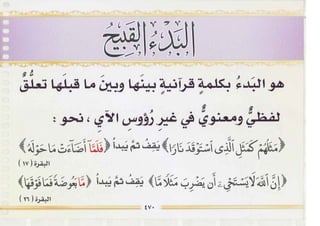 البَدْءُ القَبِيْحُ
هو البَدءُ بكلمةٍ قرآنيةٍ بينَها وبينَ ما قبلَها تعلُّقٌ
لفظيٌّ ومعنويٌّ في غيرِ رُؤوسِ الآيِ ، نحو :
﴿مَثَلُهُمْ كَمَثَلِ ٱلَّذِى ٱسْتَوْقَدَ نَارًا﴾ يَقِفُ ثمَّ يَبدأُ ﴿فَلَمَّآ أَضَآءَتْ مَا حَوْلَهُۥ﴾
البقرة ( ١٧ )
﴿إِنَّ ٱللَّهَ لَا يَسْتَحْىِۦٓ أَن يَضْرِبَ مَثَلًا مَّا﴾ يَقِفُ ثمَّ يَبدأُ ﴿مَّا بَعُوضَةً فَمَا فَوْقَهَا﴾
البقرة ( ٢٦ )
٤٧٠